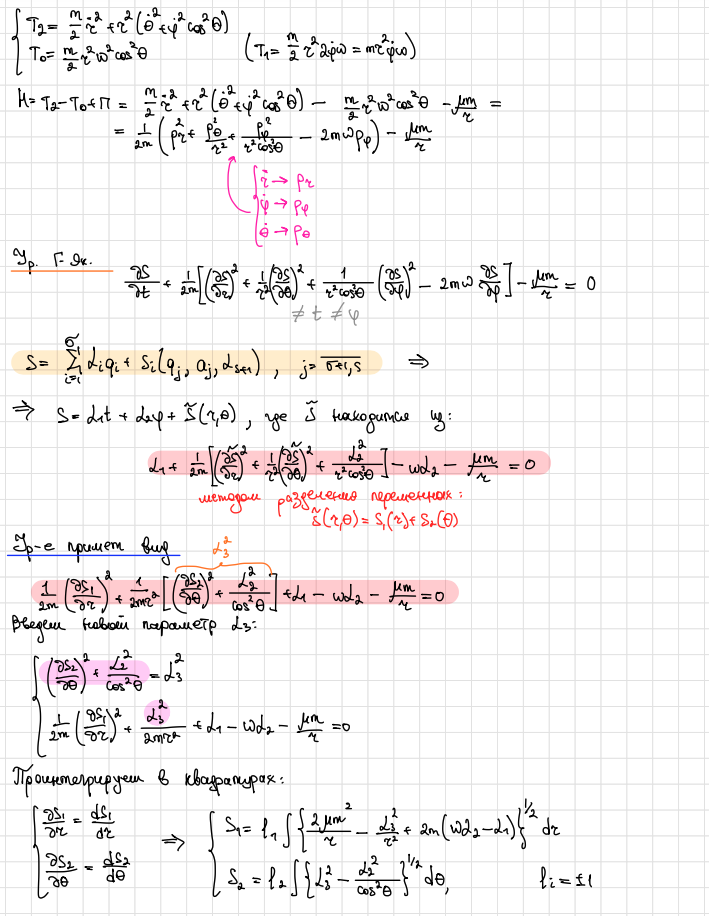 { T₂ = m/2 ṙ² + r² (θ̇² + φ̇² cos²θ)
T₀ = m/2 r² ω² cos²θ (T₁ = m/2 r² 2φ̇ω = mr²φ̇ω)
H = T₂ - T₀ + Π = m/2 ṙ² + r² (θ̇² + φ̇² cos²θ) - m/2 r² ω² cos²θ - μm/r =
= 1/2m (p_r² + p_θ²/r² + p_φ²/(r² cos²θ) - 2mωp_φ) - μm/r
{ ṙ → p_r
φ̇ → p_φ
θ̇ → p_θ
Ур. Г-Як. ∂S/∂t + 1/2m [(∂S/∂r)² + 1/r² (∂S/∂θ)² + 1/(r² cos²θ) (∂S/∂φ)² - 2mω ∂S/∂φ] - μm/r = 0
≠ t ≠ φ
S = Σ_{i=1}^{σ} α_i q_i + S_i (q_j, a_j, α_{s+1}), j = σ+1,s ⇒
⇒ S = α₁t + α₂φ + S̃(r,θ), где S̃ находится из:
α₁ + 1/2m [(∂S̃/∂r)² + 1/r² (∂S̃/∂θ)² + α₂²/(r² cos²θ)] - ωα₂ - μm/r = 0
методом разделения переменных:
S̃(r,θ) = S₁(r) + S₂(θ)
Ур-е примет вид
α₃²
1/2m (∂S₁/∂r)² + 1/2mr² [(∂S₂/∂θ)² + α₂²/cos²θ] + α₁ - ωα₂ - μm/r = 0
Введем новый параметр α₃:
{ (∂S₂/∂θ)² + α₂²/cos²θ = α₃²
1/2m (∂S₁/∂r)² + α₃²/2mr² + α₁ - ωα₂ - μm/r = 0
Проинтегрируем в квадратурах:
{ ∂S₁/∂r = dS₁/dr ⇒ { S₁ = l₁ ∫ {2μm²/r - α₃²/r² + 2m(ωα₂ - α₁)}^{1/2} dr
∂S₂/∂θ = dS₂/dθ S₂ = l₂ ∫ {α₃² - α₂²/cos²θ}^{1/2} dθ, l_i = ±1